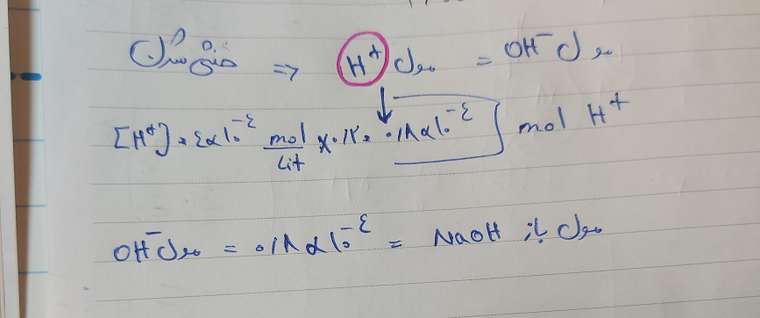 خنثی شدن ⇒ مول H⁺ = مول OH⁻
[H⁺] = ۴×۱۰⁻⁴ mol/Lit × ۰/۲ = ۰/۸×۱۰⁻⁴ mol H⁺
مول OH⁻ = ۰/۸×۱۰⁻⁴ = مول باز NaOH